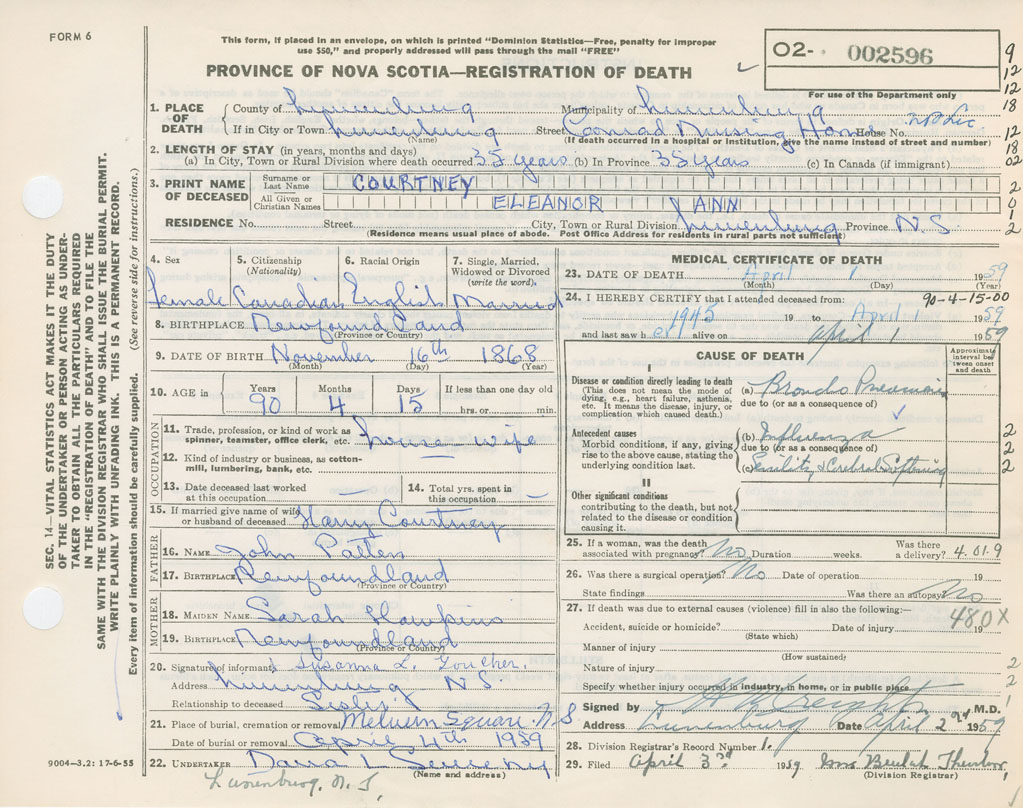 FORM 6
This form, if placed in an envelope, on which is printed "Dominion Statistics—Free, penalty for improper
use $50," and properly addressed will pass through the mail "FREE"
PROVINCE OF NOVA SCOTIA—REGISTRATION OF DEATH
O2- 002596
For use of the Department only
9
12
12
18
12
18
02
2
0
1
2
1. PLACE OF DEATH
County of Lunenburg Municipality of Lunenburg
If in City or Town Lunenburg Street Conrad Nursing Home House No.
(Name) (If death occurred in a hospital or institution, give the name instead of street and number)
2. LENGTH OF STAY (in years, months and days)
(a) In City, Town or Rural Division where death occurred 33 years (b) In Province 33 years (c) In Canada (if immigrant)
3. PRINT NAME OF DECEASED
Surname or Last Name COURTNEY
All Given or Christian Names ELEANOR ANN
RESIDENCE No. Street City, Town or Rural Division Lunenburg Province N.S.
(Residence means usual place of abode. Post Office Address for residents in rural parts not sufficient)
4. Sex
female
5. Citizenship (Nationality)
Canadian
6. Racial Origin
English
7. Single, Married, Widowed or Divorced (write the word).
Married
8. BIRTHPLACE Newfoundland
(Province or Country)
9. DATE OF BIRTH November 16th 1868
(Month) (Day) (Year)
10. AGE in
Years 90
Months 4
Days 15
If less than one day old
hrs. or min.
OCCUPATION
11. Trade, profession, or kind of work as
spinner, teamster, office clerk, etc. house-wife
12. Kind of industry or business, as cotton-
mill, lumbering, bank, etc.
13. Date deceased last worked
at this occupation —
14. Total yrs. spent in
this occupation —
15. If married give name of wife
or husband of deceased Harry Courtney
FATHER
16. NAME John Patten
17. BIRTHPLACE Newfoundland
(Province or Country)
MOTHER
18. MAIDEN NAME Sarah Hawkins
19. BIRTHPLACE Newfoundland
(Province or Country)
20. Signature of informant Susanna L. Goucher.
Address Lunenburg N.S.
Relationship to deceased Sister
21. Place of burial, cremation or removal Melvern Square N S
Date of burial or removal April 4th 1959
22. UNDERTAKER
(Name and address)
Lunenburg, N. S.
9004—3.2: 17-6-55
MEDICAL CERTIFICATE OF DEATH
23. DATE OF DEATH April 1 1959
(Month) (Day) (Year)
24. I HEREBY CERTIFY that I attended deceased from: 90-4-15-00
1945 19 to April 1 1959
and last saw h er alive on April 1 1959
CAUSE OF DEATH
Approximate interval between onset and death
I
Disease or condition directly leading to death
(This does not mean the mode of
dying, e.g., heart failure, asthenia,
etc. It means the disease, injury, or
complication which caused death.)
(a) Broncho Pneumonia
due to (or as a consequence of)
Antecedent causes
Morbid conditions, if any, giving
rise to the above cause, stating the
underlying condition last.
(b) Influenza
due to (or as a consequence of)
(c) Senility & Cerebral Softening
2
2
2
II
Other significant conditions
contributing to the death, but not
related to the disease or condition
causing it.
25. If a woman, was the death
associated with pregnancy? No Duration weeks. Was there
a delivery? 4.01.9
26. Was there a surgical operation? No Date of operation 19
State findings Was there an autopsy? No
27. If death was due to external causes (violence) fill in also the following:—
480X
Accident, suicide or homicide? Date of injury 19
(State which)
Manner of injury
(How sustained)
Nature of injury
Specify whether injury occurred in industry, in home, or in public place
2
2
1
Signed by Creighton M.D.
Address Lunenburg Date April 2nd 1959
28. Division Registrar's Record Number 1.
29. Filed April 3rd 1959 Mrs Beulah
(Division Registrar)
SEC. 14—VITAL STATISTICS ACT MAKES IT THE DUTY
OF THE UNDERTAKER OR PERSON ACTING AS UNDER-
TAKER TO OBTAIN ALL THE PARTICULARS REQUIRED
IN THE "REGISTRATION OF DEATH" AND TO FILE THE
SAME WITH THE DIVISION REGISTRAR WHO SHALL ISSUE THE BURIAL PERMIT.
WRITE PLAINLY WITH UNFADING INK. THIS IS A PERMANENT RECORD.
Every item of information should be carefully supplied. (See reverse side for instructions.)